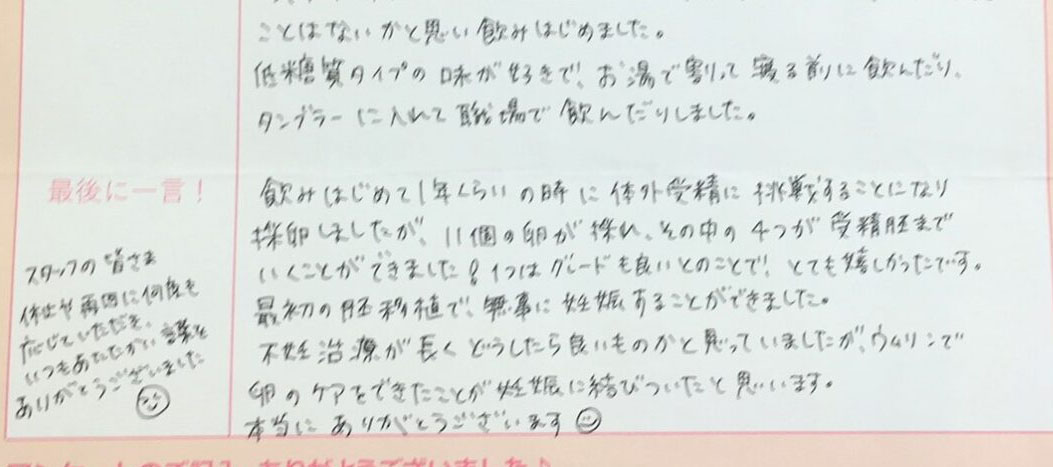 ことはないかと思い飲みはじめました。
低糖質タイプの味が好きで、お湯で割って寝る前に飲んだり、
タンブラーに入れて職場で飲んだりしました。
最後に一言！
飲みはじめて1年くらいの時に体外受精に挑戦することになり
採卵しましたが、11個の卵が採れ、その中の4つが受精胚まで
いくことができました！1つはグレードも良いとのことで、とても嬉しかったです。
最初の胚移植で、無事に妊娠することができました。
不妊治療が長くどうしたら良いものかと思っていましたが、ウムリンで
卵のケアをできたことが妊娠に結びついたと思います。
本当にありがとうございます
スタッフの皆さま
休止や再開に何度も
応じていただき、
いつもあたたかい言葉を
ありがとうございました